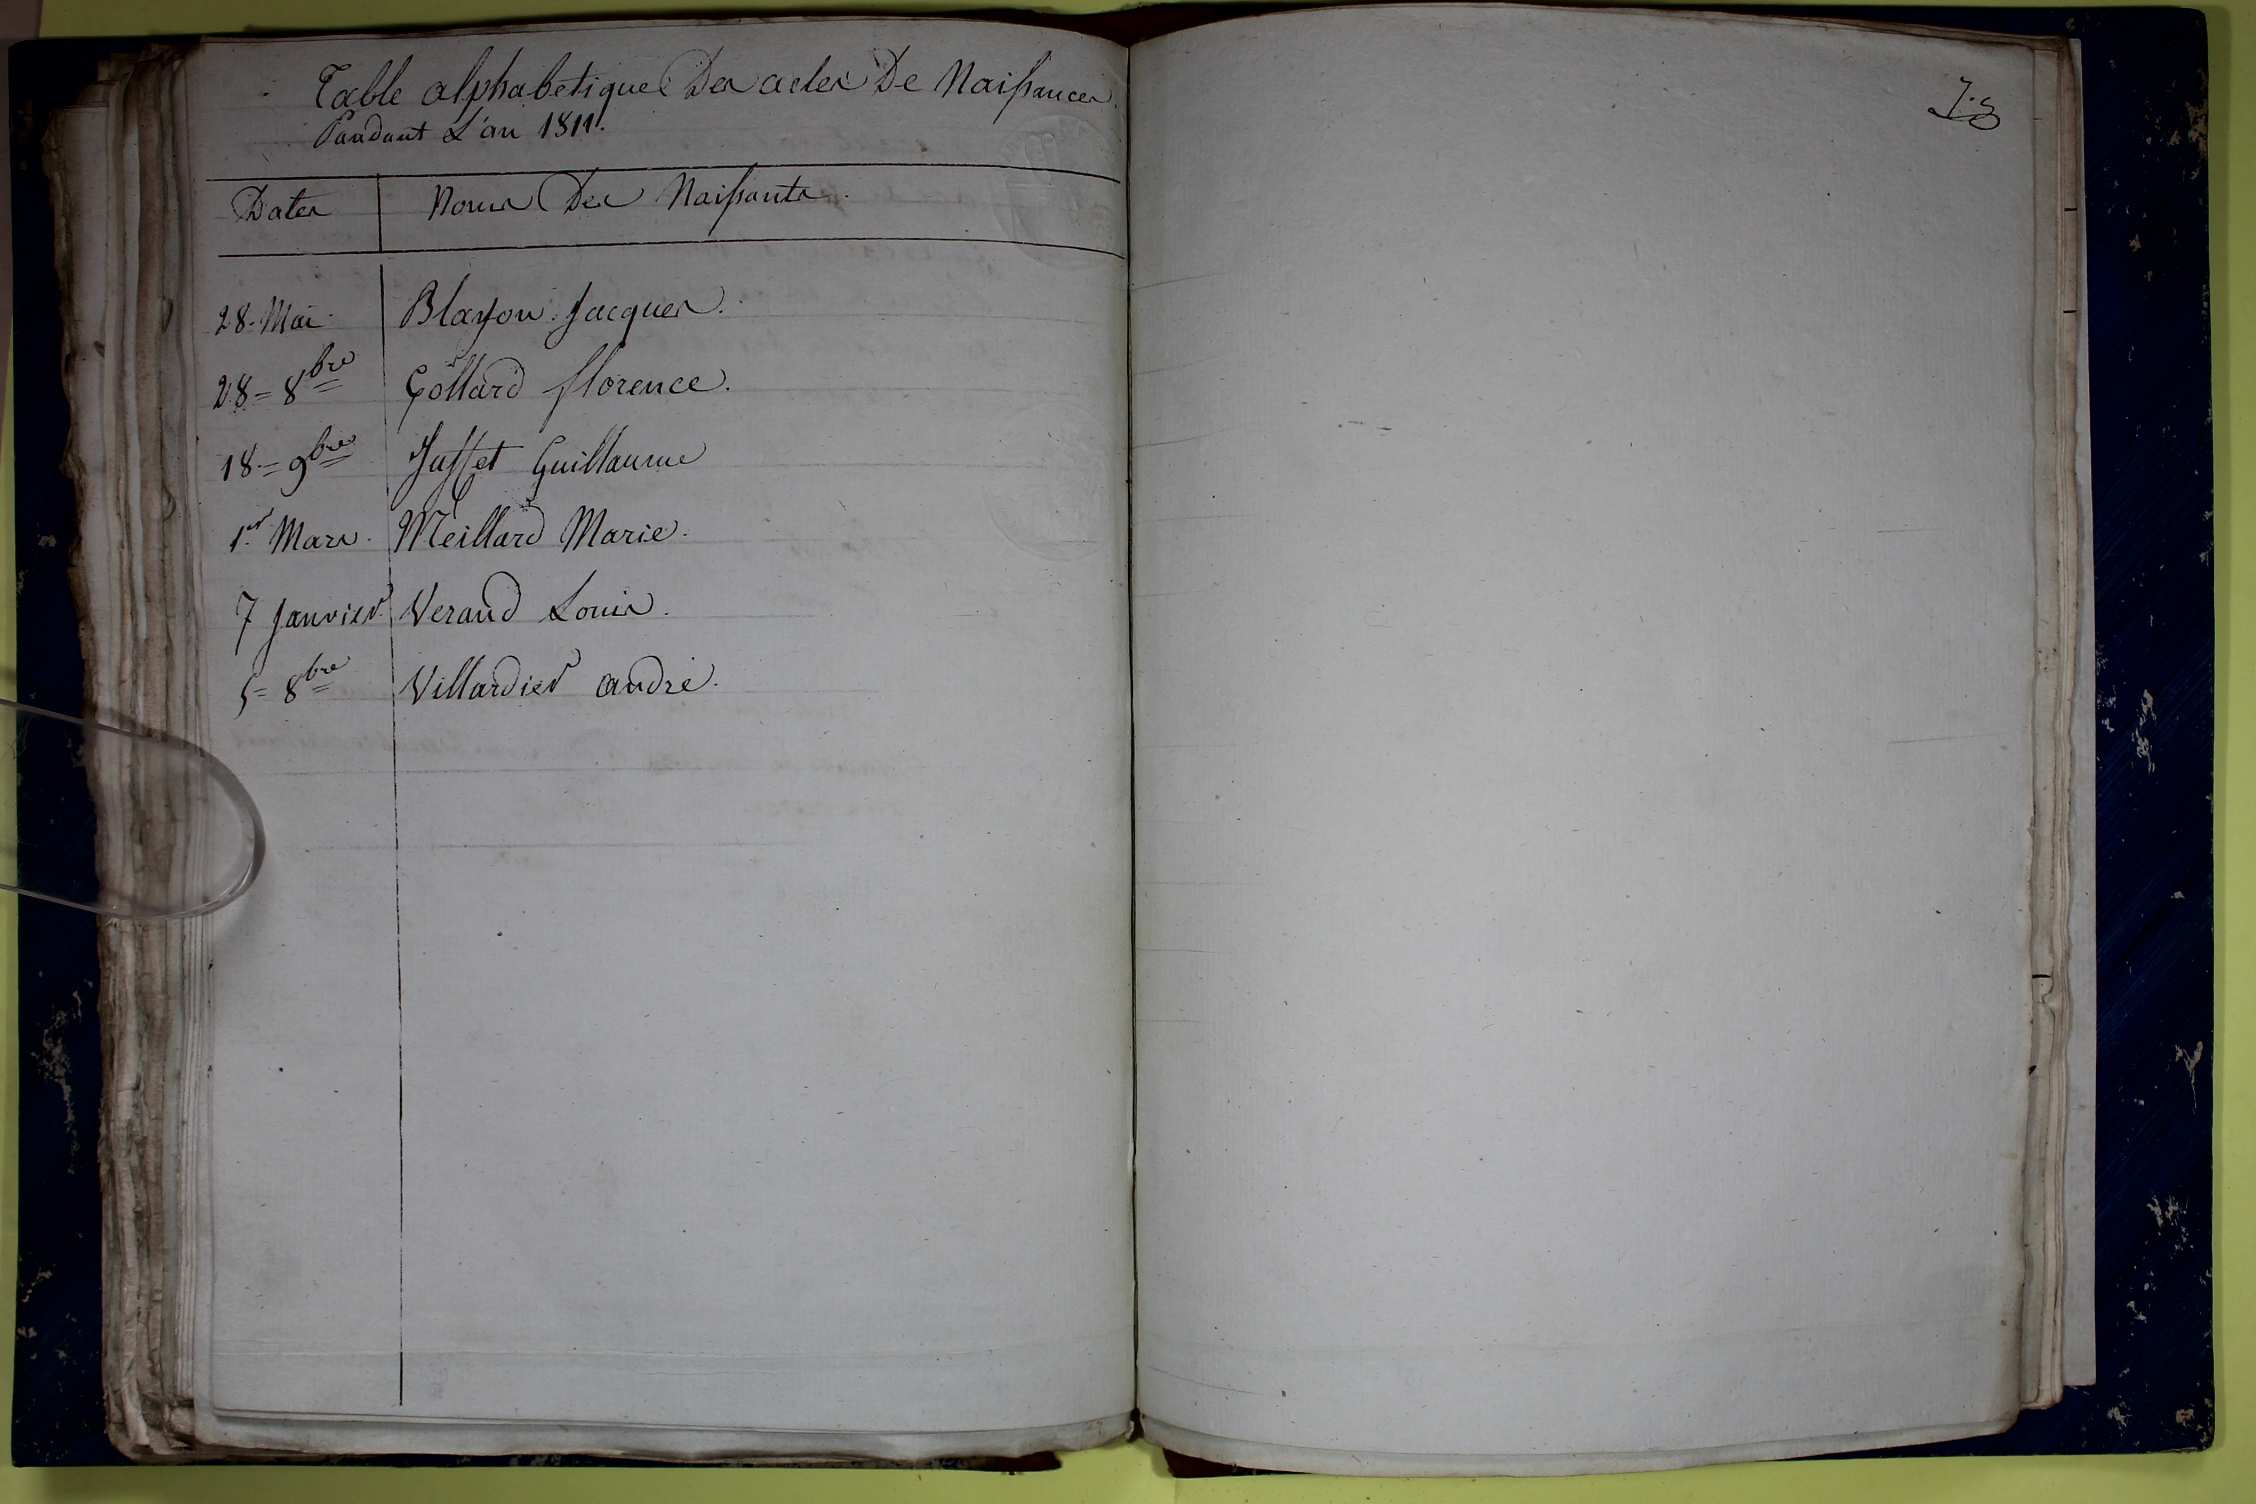 Table alphabetique Des actes De Naissances
Pandant L'an 1811.
Dates Noms Des Naissants.
28. Mai. Blayon Jacques.
28 = 8bre Gollard florence.
18 = 9bre Juffet Guillaume
1er Mars. Meillard Marie.
7 Janvier. Veraud Louis.
5 = 8bre Villardier andré.